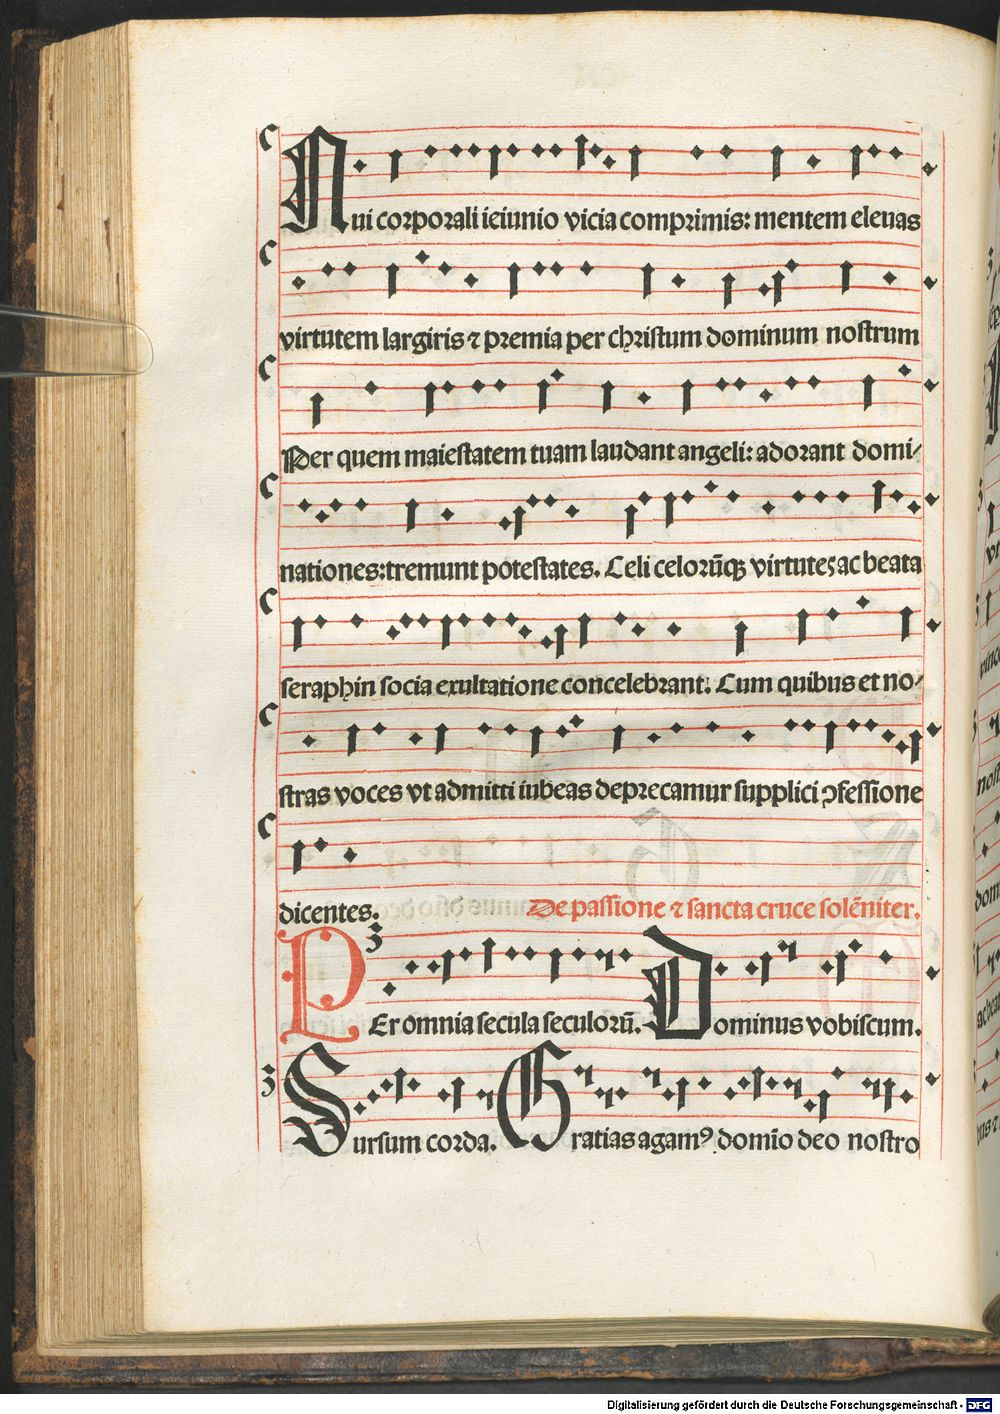 Qui corporali ieiunio vicia comprimis: mentem eleuas
virtutem largiris ⁊ premia per christum dominum nostrum
Per quem maiestatem tuam laudant angeli: adorant domi/
nationes: tremunt potestates. Celi celorūqꝫ virtutes ac beata
seraphin socia exultatione concelebrant. Cum quibus et no/
stras voces vt admitti iubeas deprecamur supplici ꝯfessione
dicentes. De passione ⁊ sancta cruce solēniter.
PEr omnia secula seculorū. Dominus vobiscum.
Sursum corda. Gratias agamꝰ domīo deo nostro
Digitalisierung gefördert durch die Deutsche Forschungsgemeinschaft - DFG